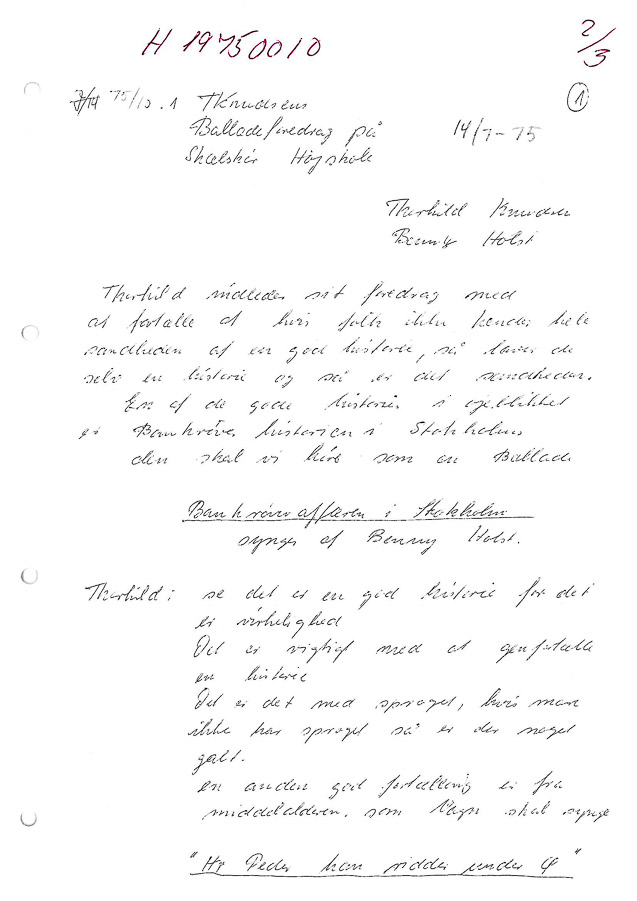 H 19750010
2/3
1
75/10.1 TKnudsens
Balladeforedrag på
14/7-75
Skælskør Højskole
Thorkild Knudsen
Benny Holst
Thorkild indleder sit foredrag med
at fortælle at hvis folk ikke kender hele
sandheden af en god historie, så laver de
selv en historie og så er det sandheden.
En af de gode historier i øjeblikket
er Bankrøver historien i Stokholm
den skal vi høre som en Ballade
Bankrøveraffæren i Stokholm
synges af Benny Holst.
Thorkild: se det er en god historie for det
er virkelighed
Det er vigtigt med at genfortælle
en historie
Det er det med sproget, hvis man
ikke har sproget så er der noget
galt.
en anden god fortælling er fra
middelalderen. som Vagn skal synge
"Hr Peder han ridder under Ø"